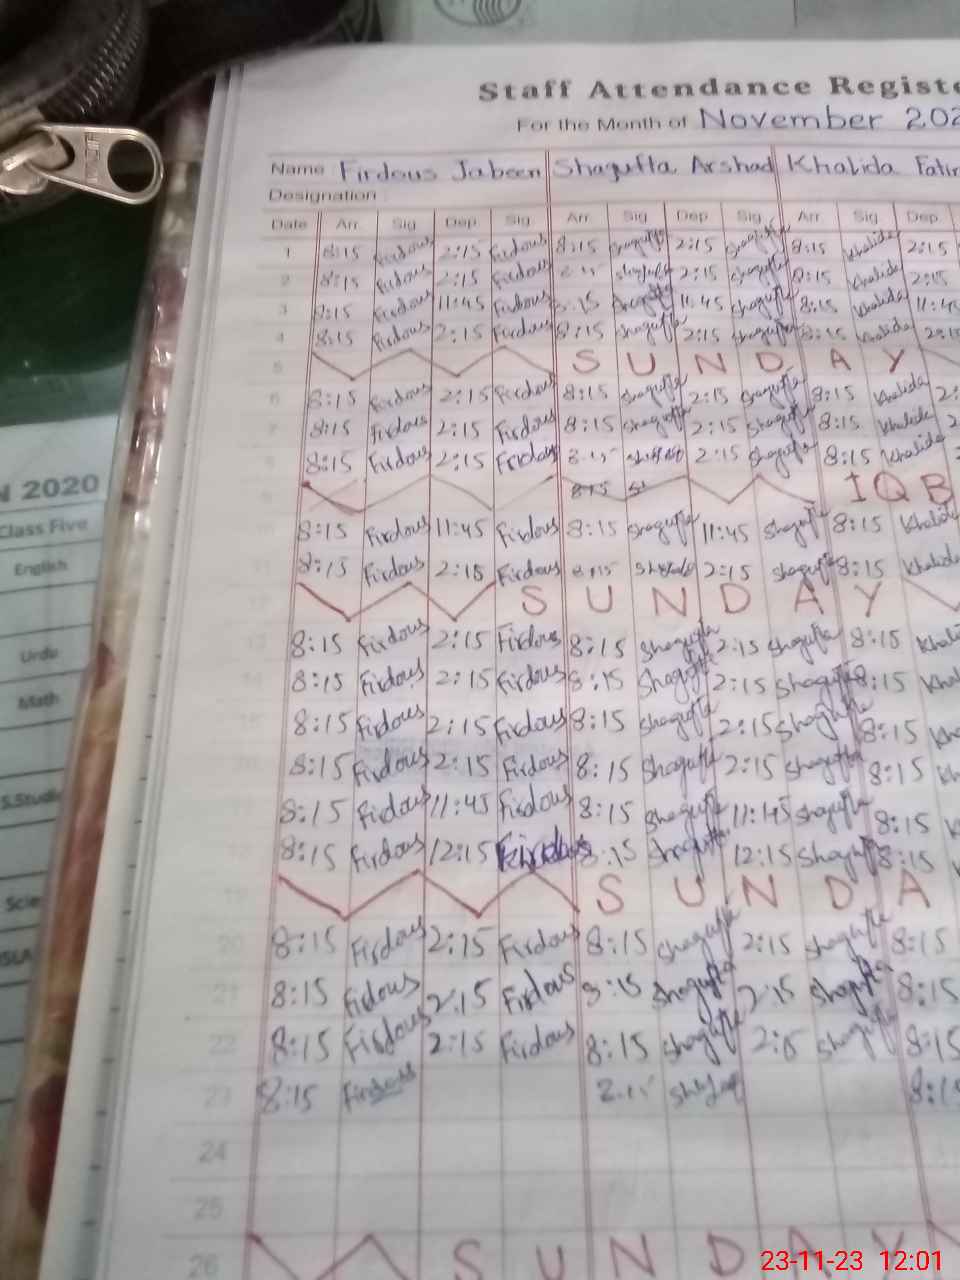 Staff Attendance Registe
For the Month of November 202
Name Firdous Jabeen Shagufta Arshad Khalida Fatim
Designation
Date Arr. Sig Dep. Sig. Arr. Sig. Dep. Sig. Arr. Sig. Dep.
1 8:15 Firdous 2:15 Firdous 8:15 Shagufta 2:15 Shagufta 8:15 Khalida 2:15
2 8:15 Firdous 2:15 Firdous Shagufta 2:15 Shagufta 8:15 Khalida 2:15
3 8:15 Firdous 11:45 Firdous 8:15 Shagufta 11:45 Shagufta 8:15 Khalida 11:4
4 8:15 Firdous 2:15 Firdous 8:15 Shagufta 2:15 Shagufta 8:15 Khalida 2:15
5 S U N D A Y
6 8:15 Firdous 2:15 Firdous 8:15 Shagufta 2:15 Shagufta 8:15 Khalida 2:
7 8:15 Firdous 2:15 Firdous 8:15 Shagufta 2:15 Shagufta 8:15 Khalida 2
8 8:15 Firdous 2:15 Firdous 8:15 Shagufta 2:15 Shagufta 8:15 Khalida 2
9 8:15 I Q B
10 8:15 Firdous 11:45 Firdous 8:15 Shagufta 11:45 Shagufta 8:15 Khalida
11 8:15 Firdous 2:15 Firdous 8:15 Shagufta 2:15 Shagufta 8:15 Khalida
12 S U N D A Y
13 8:15 Firdous 2:15 Firdous 8:15 Shagufta 2:15 Shagufta 8:15 Khali
14 8:15 Firdous 2:15 Firdous 8:15 Shagufta 2:15 Shagufta 8:15 Khal
15 8:15 Firdous 2:15 Firdous 8:15 Shagufta 2:15 Shagufta 8:15 Kha
16 8:15 Firdous 2:15 Firdous 8:15 Shagufta 2:15 Shagufta 8:15 Kh
17 8:15 Firdous 11:45 Firdous 8:15 Shagufta 11:45 Shagufta 8:15 K
18 8:15 Firdous 12:15 Firdous 8:15 Shagufta 12:15 Shagufta 8:15 K
19 S U N D A
20 8:15 Firdous 2:15 Firdous 8:15 Shagufta 2:15 Shagufta 8:15
21 8:15 Firdous 2:15 Firdous 8:15 Shagufta 2:15 Shagufta 8:15
22 8:15 Firdous 2:15 Firdous 8:15 Shagufta 2:15 Shagufta 8:15
23 8:15 Firdous 8:15
24
25
26 S U N D A Y
N 2020
Class Five
English
Urdu
Math
S.Studi
Scie
ISLA
23-11-23 12:01